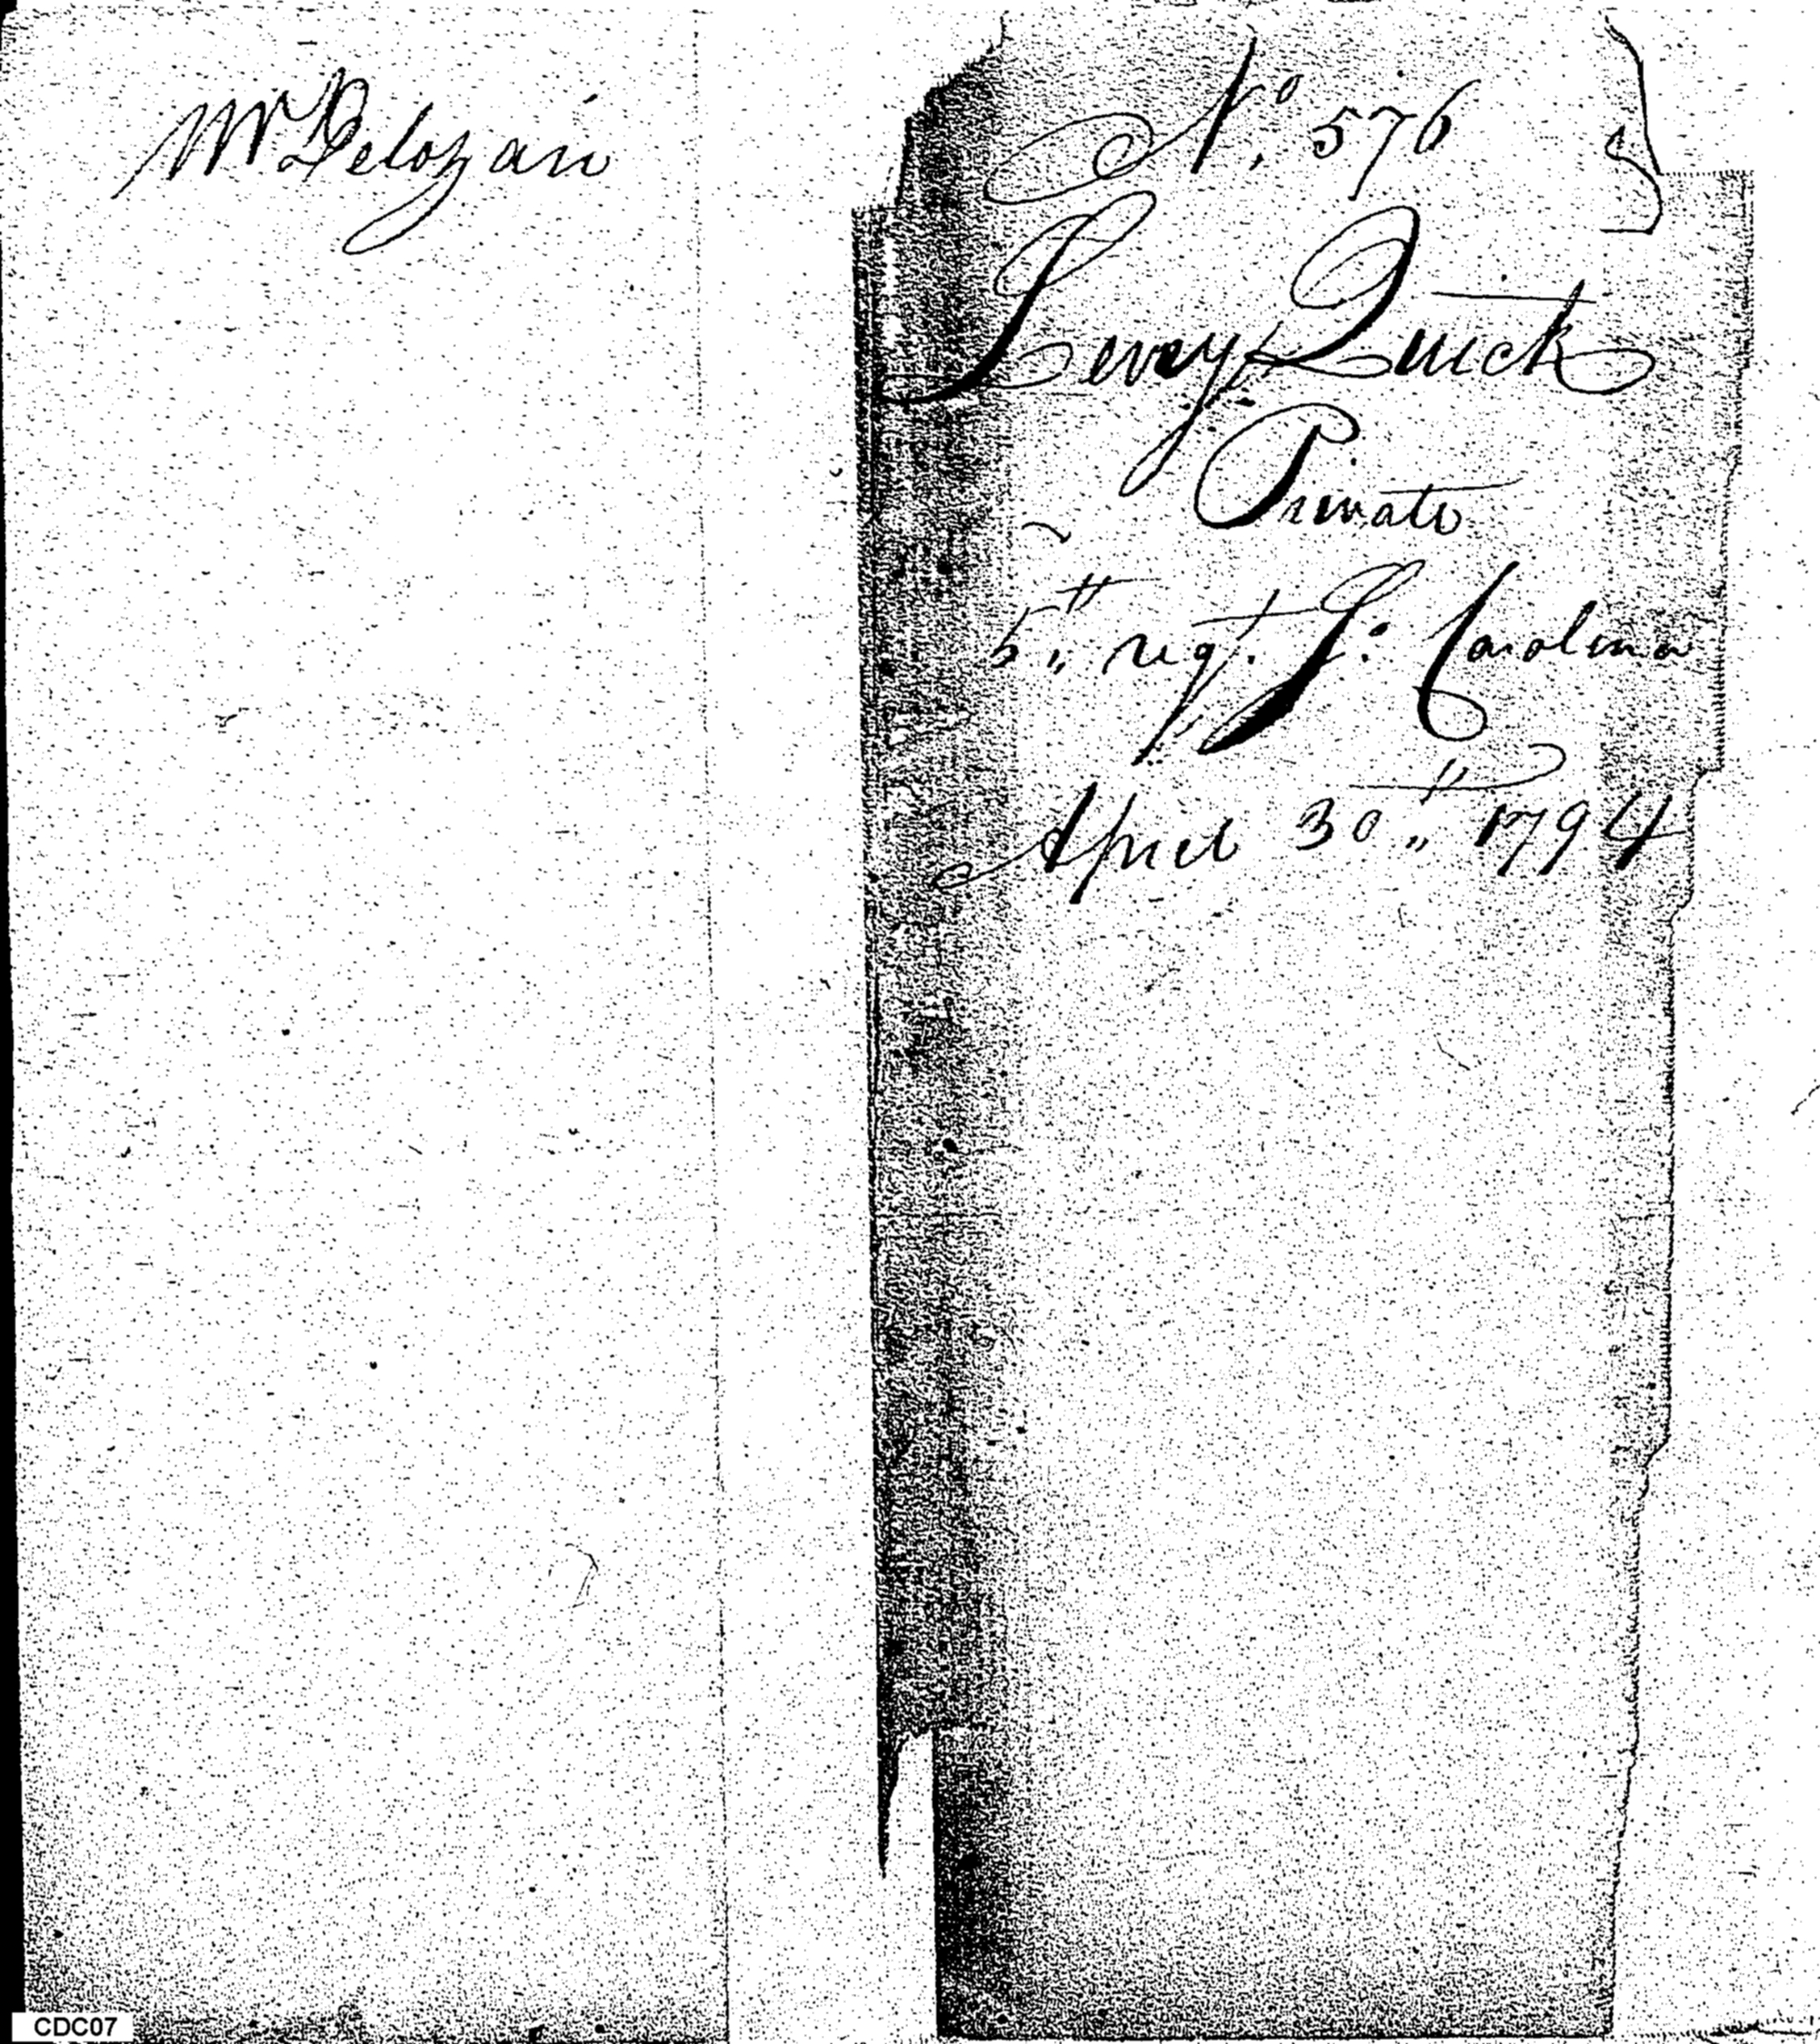 Mr Delozari
No. 576
Levey Quick
Private
5th regt. S: Carolina
April 30th 1794
CDC07